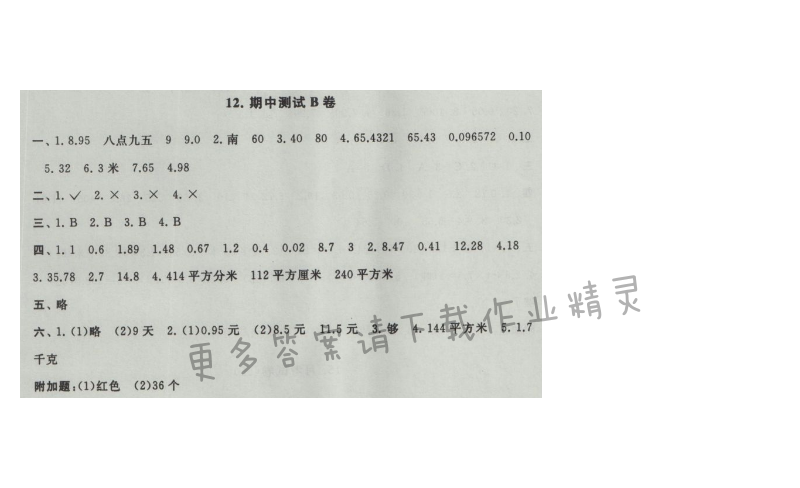 12. 期中测试 B 卷
一、1. 8.95 八点九五 9 9.0 2. 南 60 3. 40 80 4. 65.4321 65.43 0.096572 0.10
5. 32 6. 3 米 7. 65 4.98
二、1. ✓ 2. × 3. × 4. ×
三、1. B 2. B 3. B 4. B
四、1. 1 0.6 1.89 1.48 0.67 1.2 0.4 0.02 8.7 3 2. 8.47 0.41 12.28 4.18
3. 35.78 2.7 14.8 4. 414 平方分米 112 平方厘米 240 平方米
五、略
六、1. (1)略 (2)9 天 2. (1)0.95 元 (2)8.5 元 11.5 元 3. 够 4. 144 平方米 5. 1.7
千克
附加题:(1)红色 (2)36 个
更多答案请下载作业精灵